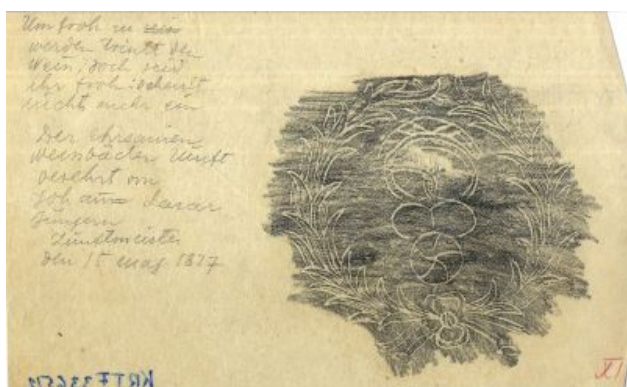 Um froh zu ein
werden trinkt den
Wein, doch seid
ihr froh: schenkt
nicht mehr ein
Der ehrsamen
weinbäcker Zunft
verehrt von
Joh
Zunftmeister
den 15 may 1827
KBTF33651
XI